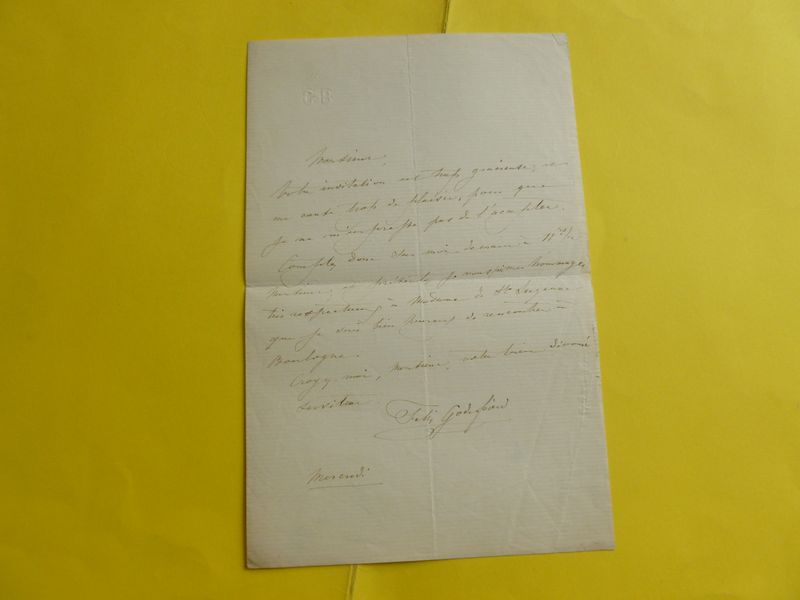 GB
Monsieur,
Votre invitation est trop gracieuse, et
me cause trop de plaisir, pour que
je ne m'empresse pas de l'accepter.
Comptez donc sur moi demain à 11h 1/2
Monsieur, et présentez je vous prie mes hommages
très respectueux à Madame de St
que je serai bien heureux de rencontrer à
Boulogne.
Croyez moi, Monsieur, votre bien dévoué
serviteur
Félix Godefroid
Mercredi